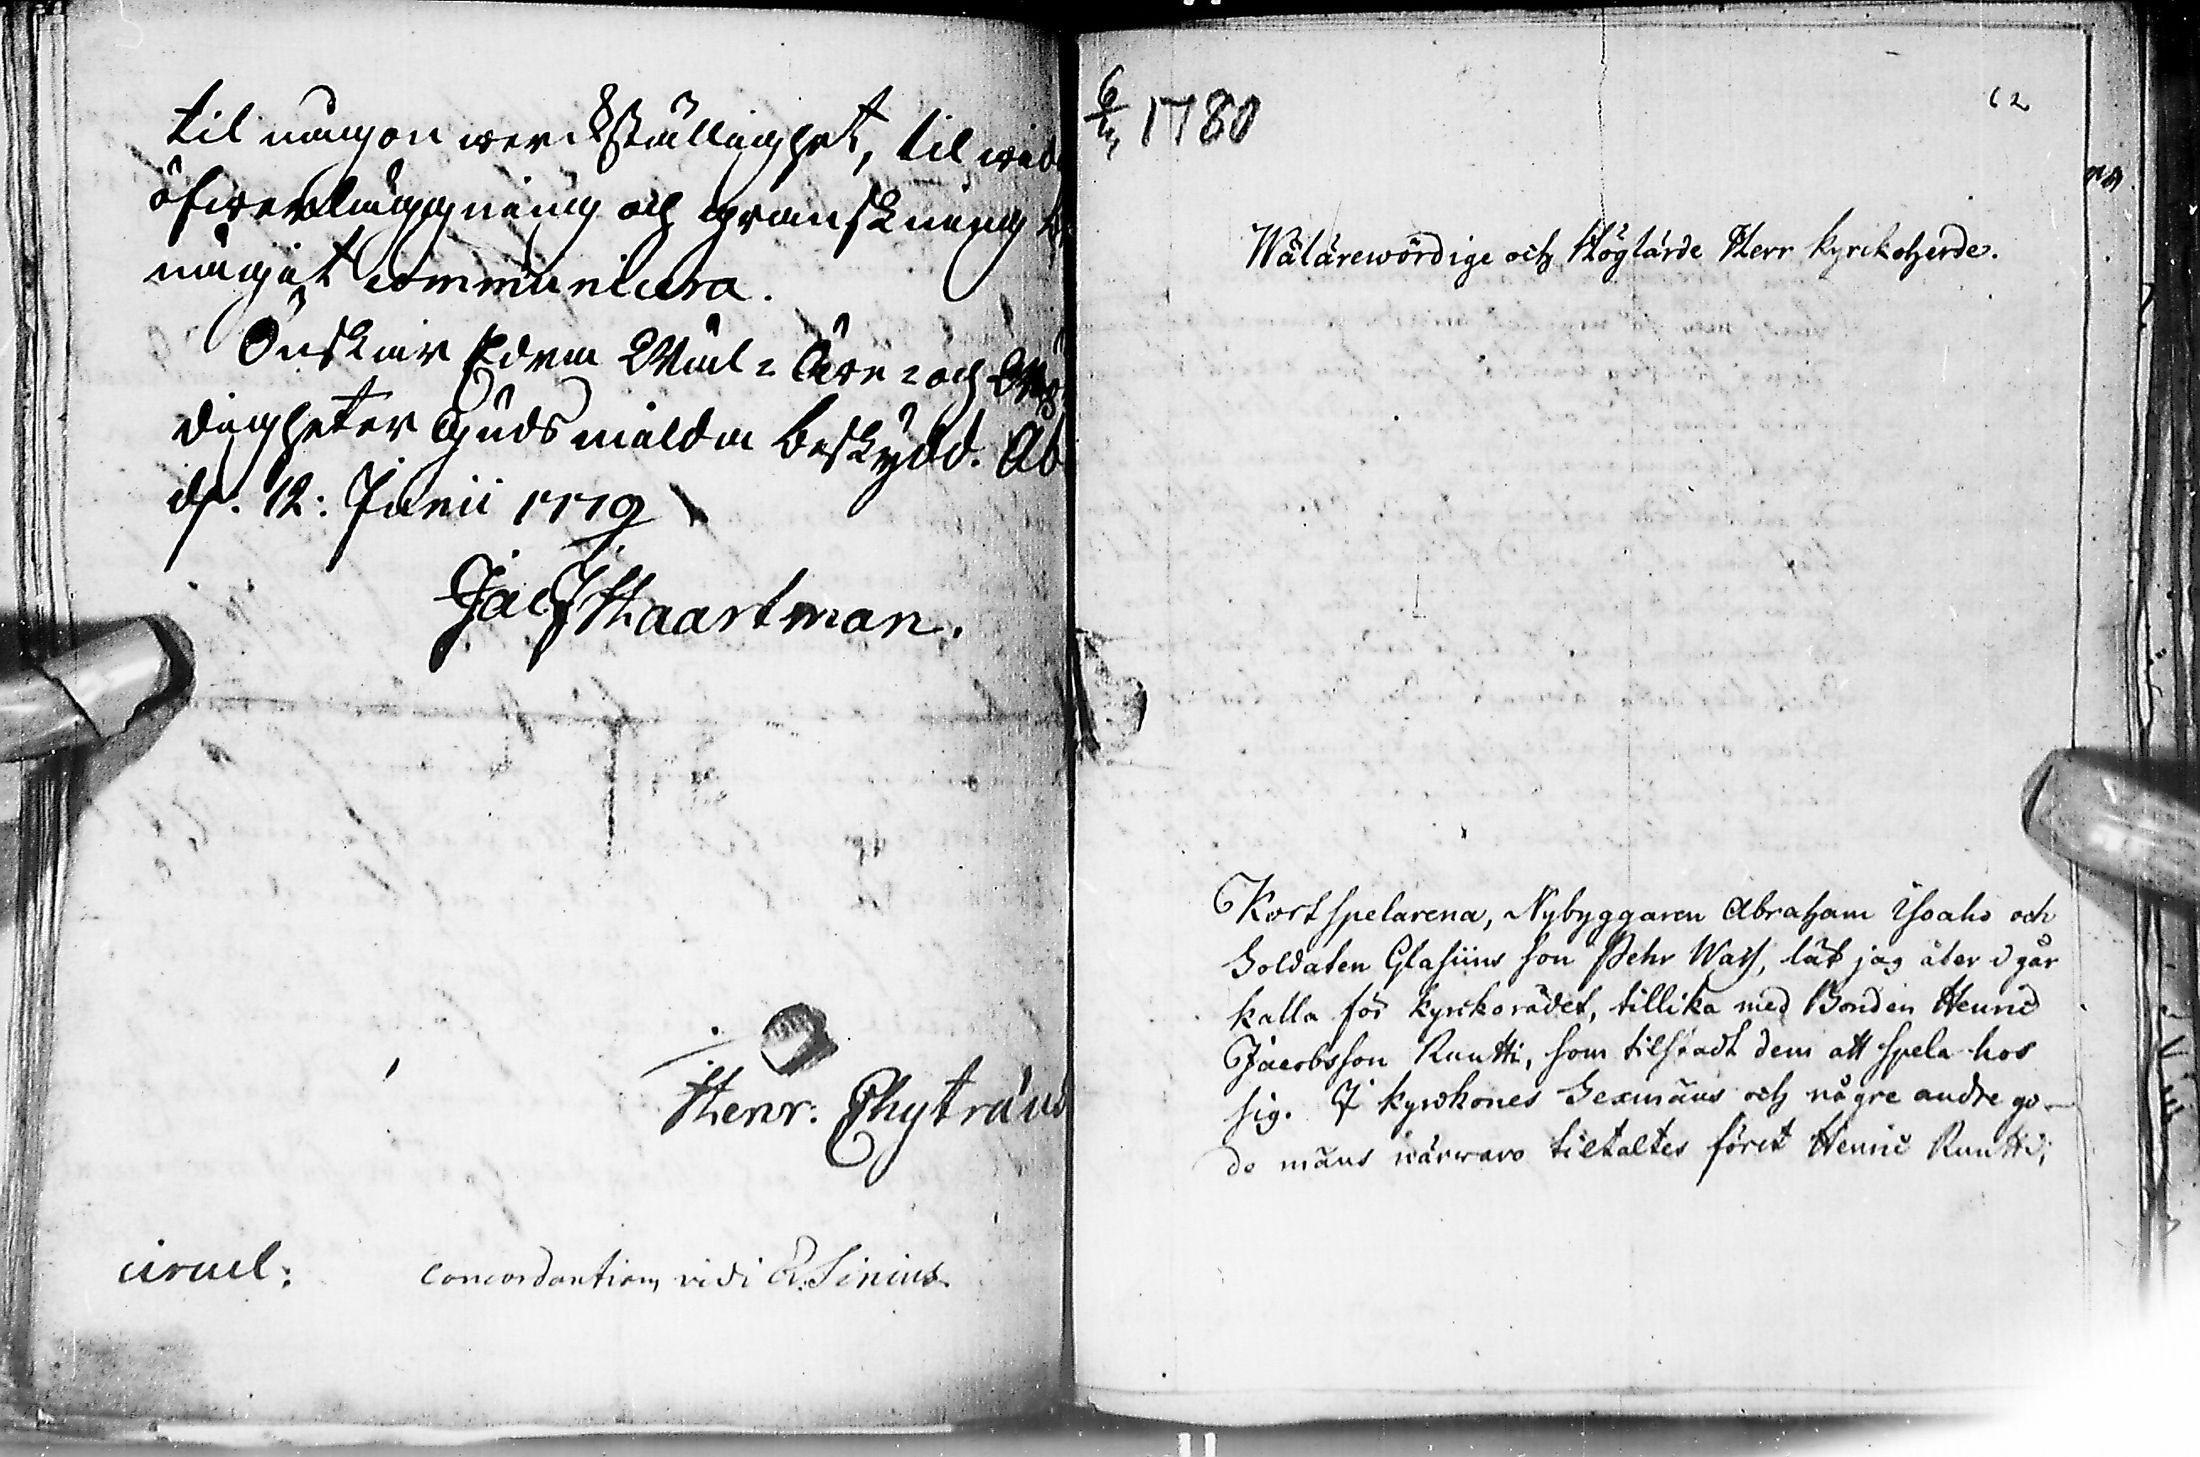 til någon werckställighet, til wid
öfwerläggning och granskning
något communicera.
Önskar Edra Wäl- Äre- och
digheter Guds milda beskydd. Åb
d. 12. Junii 1779
Jac Haartman.
Henr. Chyträus
circul: concordantiam vidi Sinius.
6/ 1780
62
Wälärewördige och Höglärde Herr Kyrckoherde.
Kortspelarena, Nybyggaren Abraham Isoaho och
Soldaten Glasiius son Pehr Wass, lät jag åter i går
kalla för kyrckorådet, tillika med Bonden Henric
Jacobsson Ruutti, som tilstadt dem att spela hos
sig. I kyrckones Sexmäns och några andre go-
de mäns närwaro tiltaltes föret Henric Ruutti,